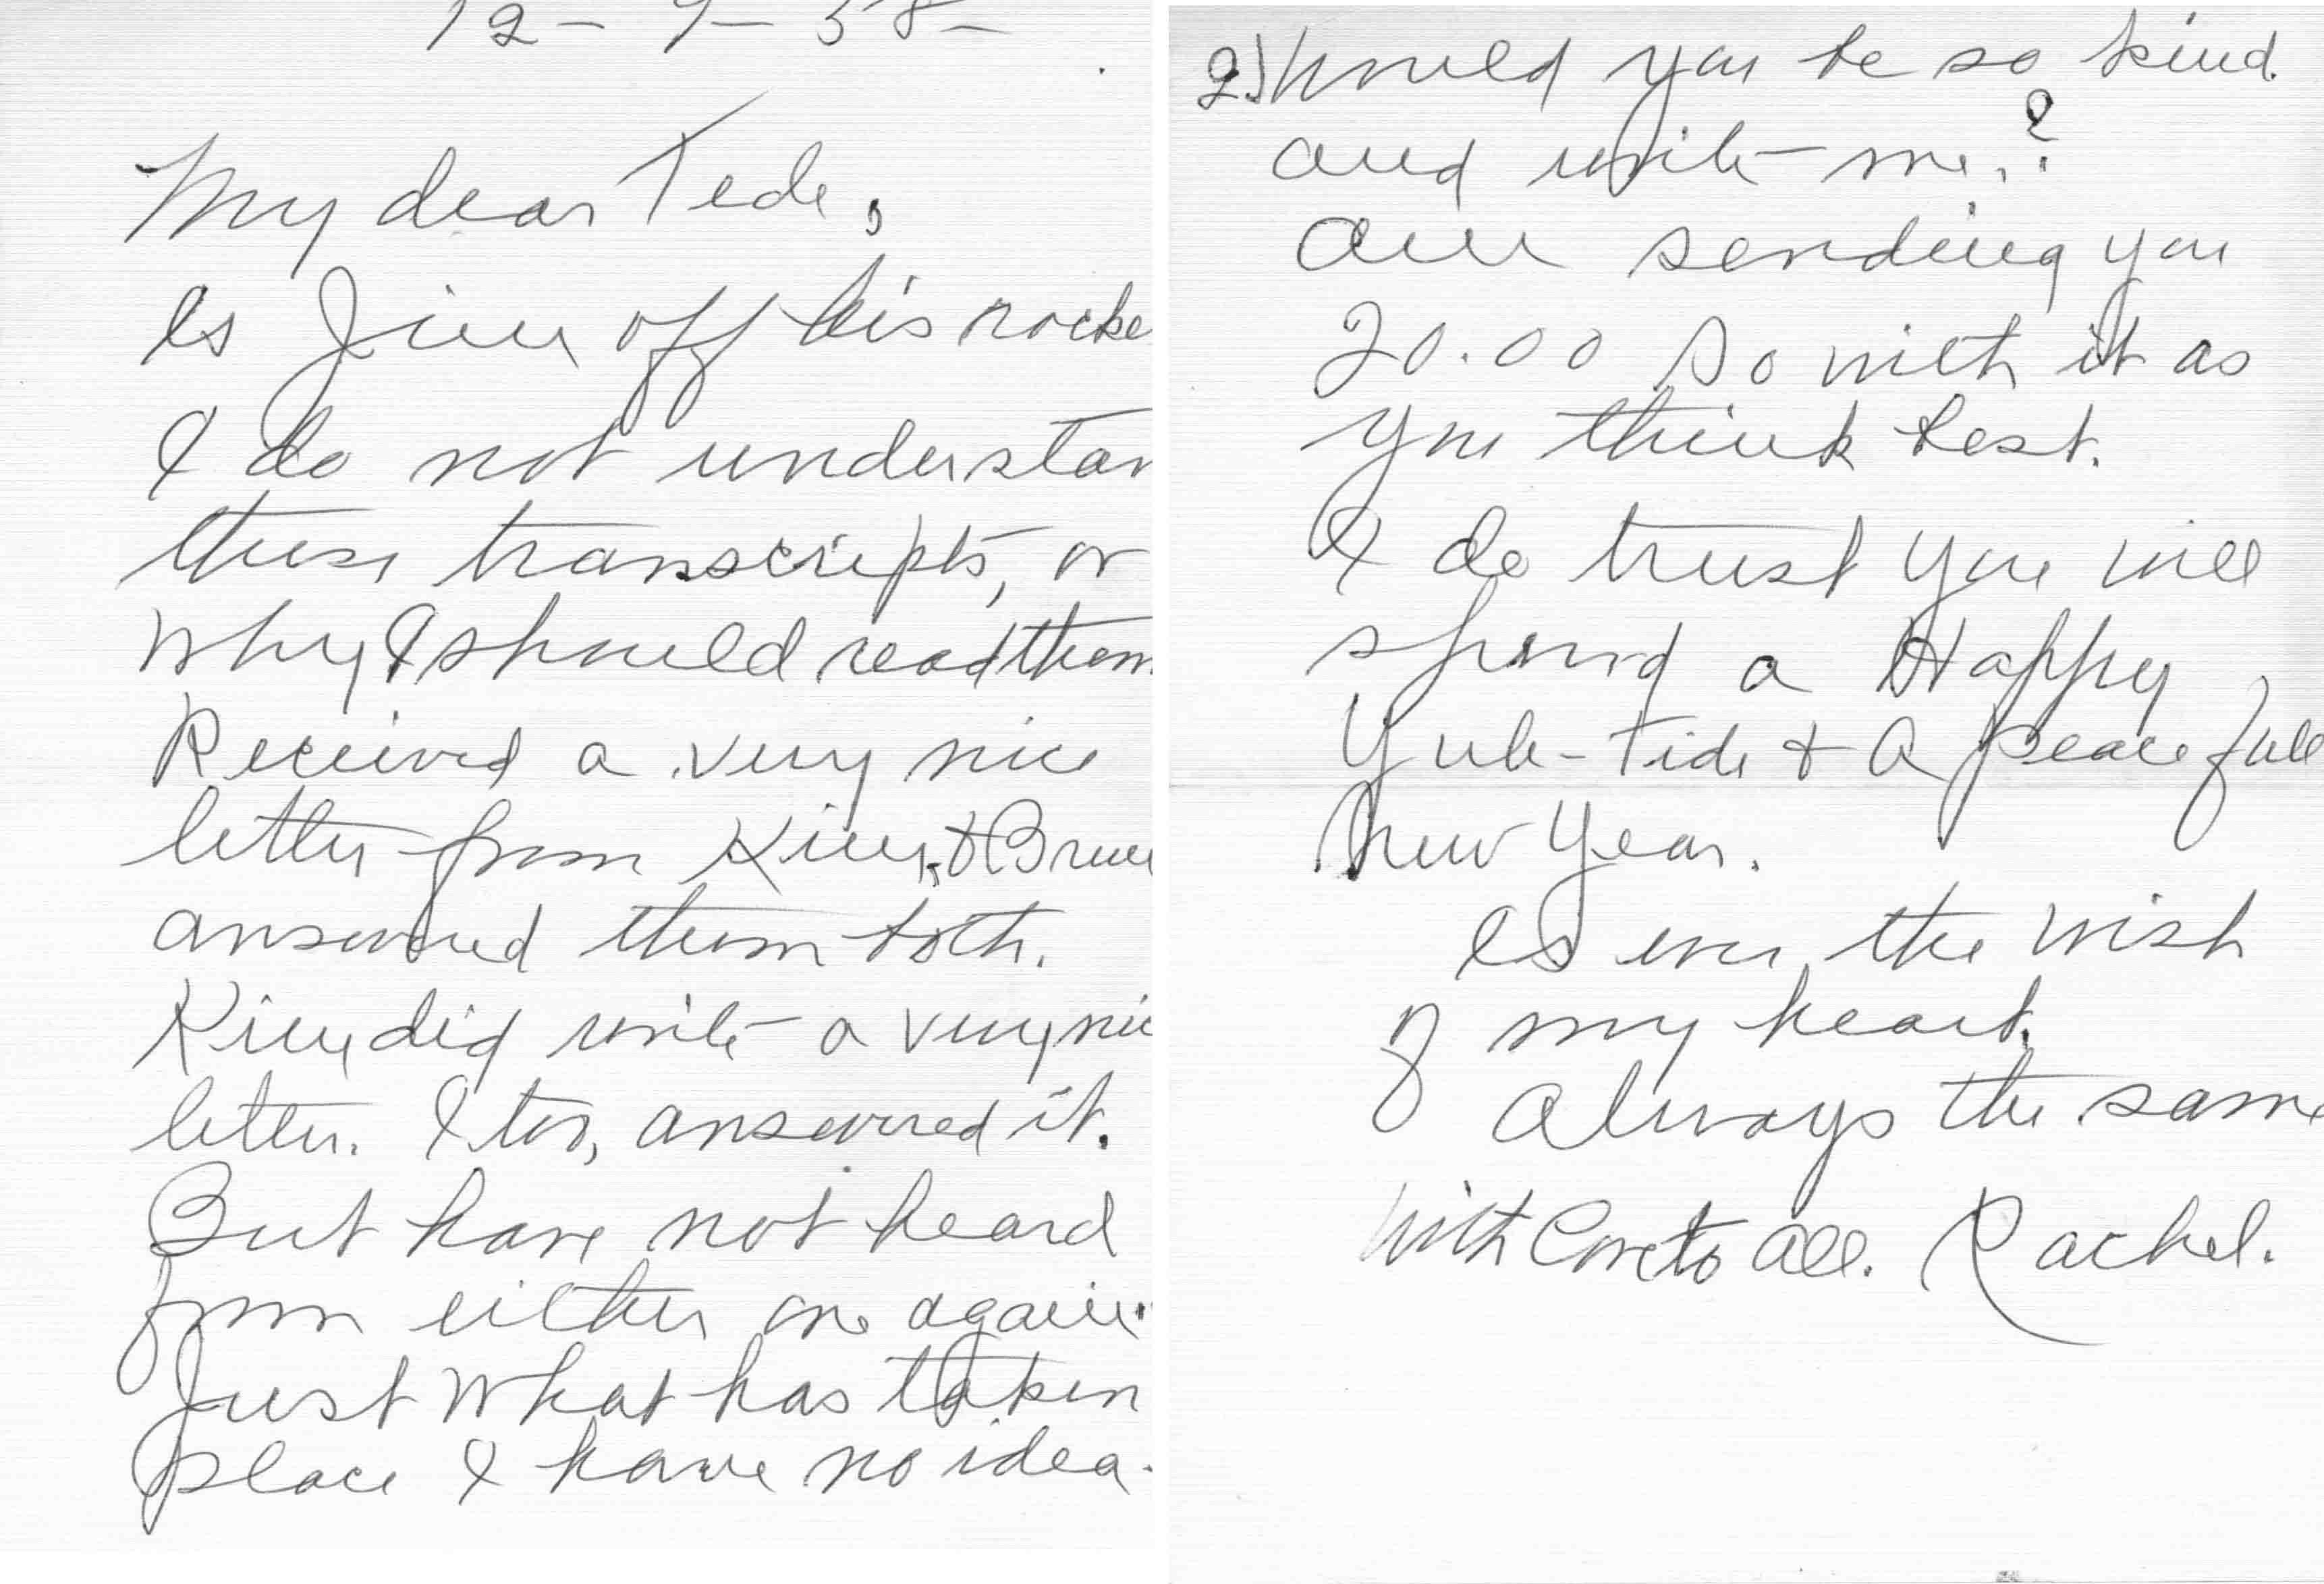 12 - 9 - 58 -
My dear Tede,
Is Jim off his rocke
I do not understan
these transcripts, or
why I should read them
Received a very nice
letter from Kim, & Bruce
answered them both.
Kim did write a very nic
letter. I too, answered it.
But have not heard
from either one again.
Just what has taken
place I have no idea.
2) Would you be so kind
and write me,?
Am sending you
20.00 Do with it as
you think best.
I do trust you will
spend a Happy
Yule-Tide & A Peacefull
New Year.
Is ever the wish
of my heart.
Always the same
With Love to all. Rachel.